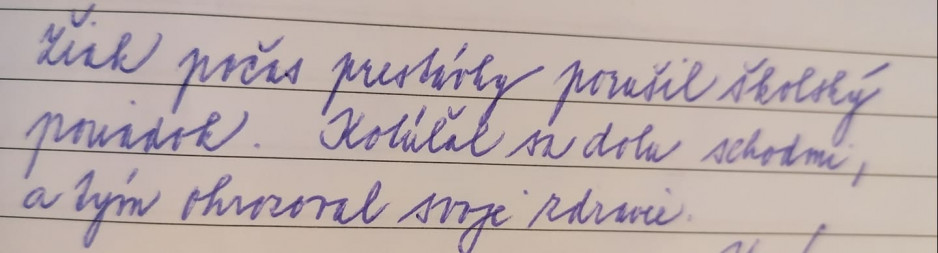 Žiak počas prestávky porušil školský
poriadok. Kotúľal sa dolu schodmi,
a tým ohrozoval svoje zdravie.